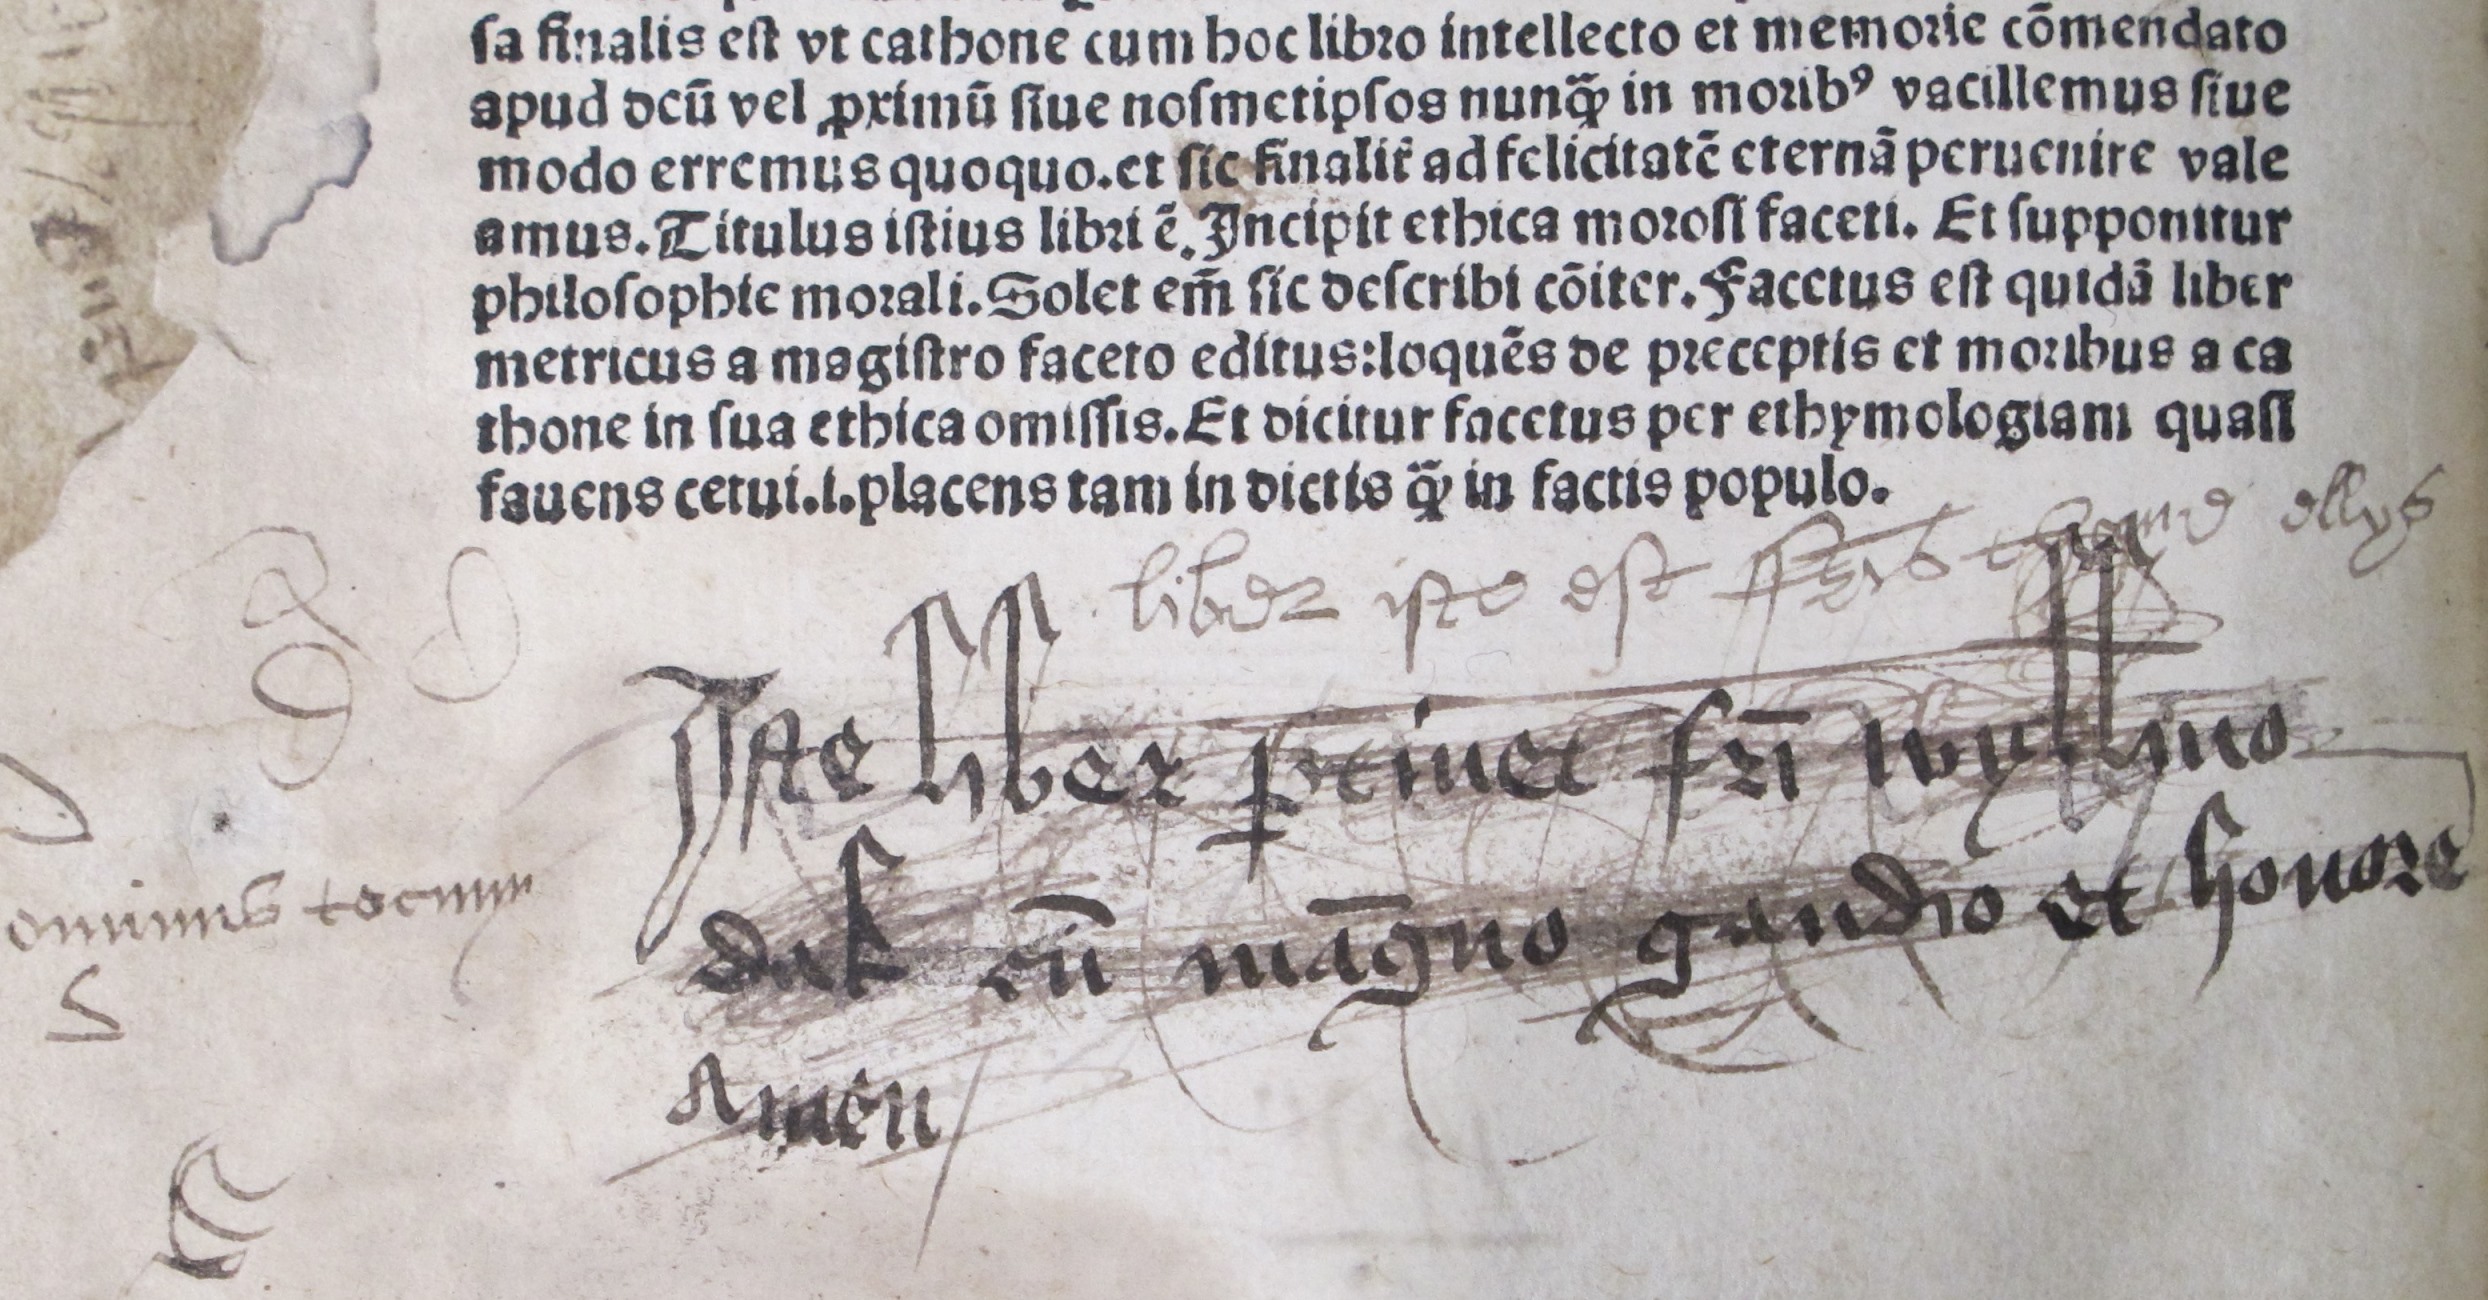 sa finalis est vt cathone cum hoc libro intellecto et memorie cōmendato
apud deū vel ꝓximū siue nosmetipsos nunqꝫ̃ in moribꝰ vacillemus siue
modo erremus quoquo.et sic finalit̃ ad felicitatē eternā peruenire vale
amus.Titulus istius libri ē.Incipit ethica morosi faceti. Et supponitur
philosophie morali.Solet em̄ sic describi cōiter.Facetus est quidā liber
metricus a magistro faceto editus:loquēs de preceptis et moribus a ca
thone in sua ethica omissis.Et dicitur facetus per ethymologiam quasi
fauens cetui.i.placens tam in dictis qꝫ̃ in factis populo.
liber iste est
Iste liber ꝑtinet frī wyllmo
cū māgno gaudio et honore
ominus tecum
Amen